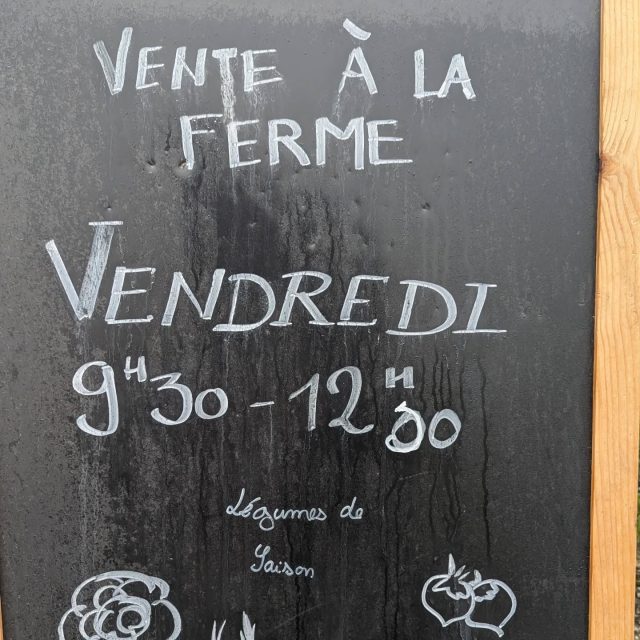 VENTE À LA
FERME
VENDREDI
9H30 - 12H00
Légumes de
Saison